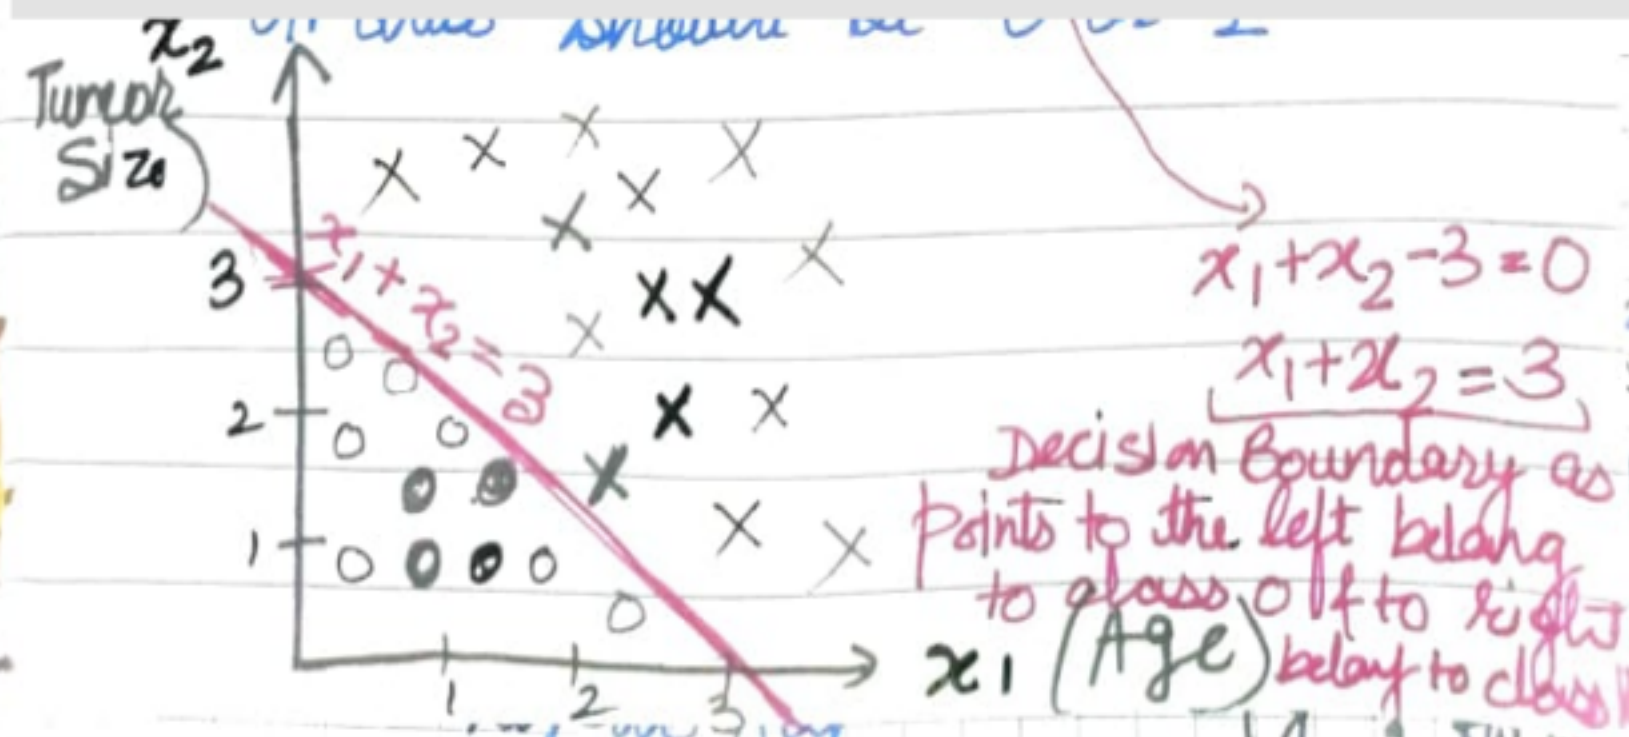 x₂
Tumor
Size
x₁ + x₂ = 3
3
2
1
1 2 3
x₁ (Age)
x₁+x₂-3=0
x₁+x₂=3
Decision Boundary as
points to the left belong
to class 0 & to right
belong to class